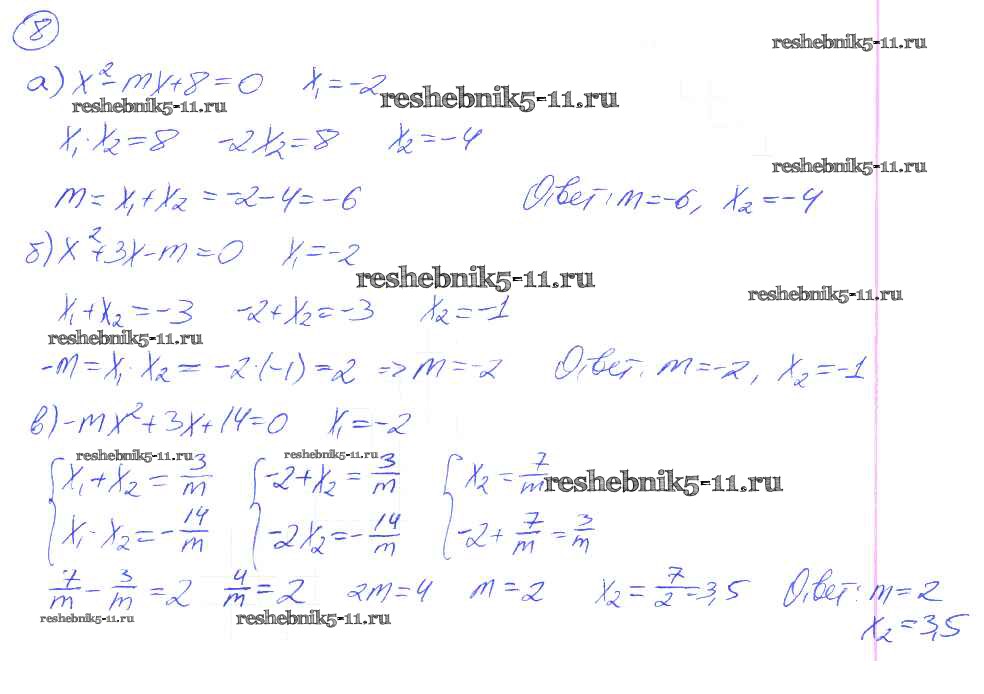 8
reshebnik5-11.ru
а) x² - mx + 8 = 0 x₁ = -2
reshebnik5-11.ru
reshebnik5-11.ru
x₁ · x₂ = 8 -2x₂ = 8 x₂ = -4
reshebnik5-11.ru
m = x₁ + x₂ = -2 - 4 = -6 Ответ: m = -6, x₂ = -4
б) x² + 3x - m = 0 x₁ = -2
reshebnik5-11.ru
reshebnik5-11.ru
x₁ + x₂ = -3 -2 + x₂ = -3 x₂ = -1
reshebnik5-11.ru
-m = x₁ · x₂ = -2 · (-1) = 2 => m = -2 Ответ: m = -2, x₂ = -1
в) -mx² + 3x + 14 = 0 x₁ = -2
reshebnik5-11.ru reshebnik5-11.ru
{ x₁ + x₂ = 3/m { -2 + x₂ = 3/m { x₂ = 7/m
reshebnik5-11.ru
x₁ · x₂ = -14/m -2x₂ = -14/m -2 + 7/m = 3/m
7/m - 3/m = 2 4/m = 2 2m = 4 m = 2 x₂ = 7/2 = 3,5 Ответ: m = 2
reshebnik5-11.ru reshebnik5-11.ru
x₂ = 3,5